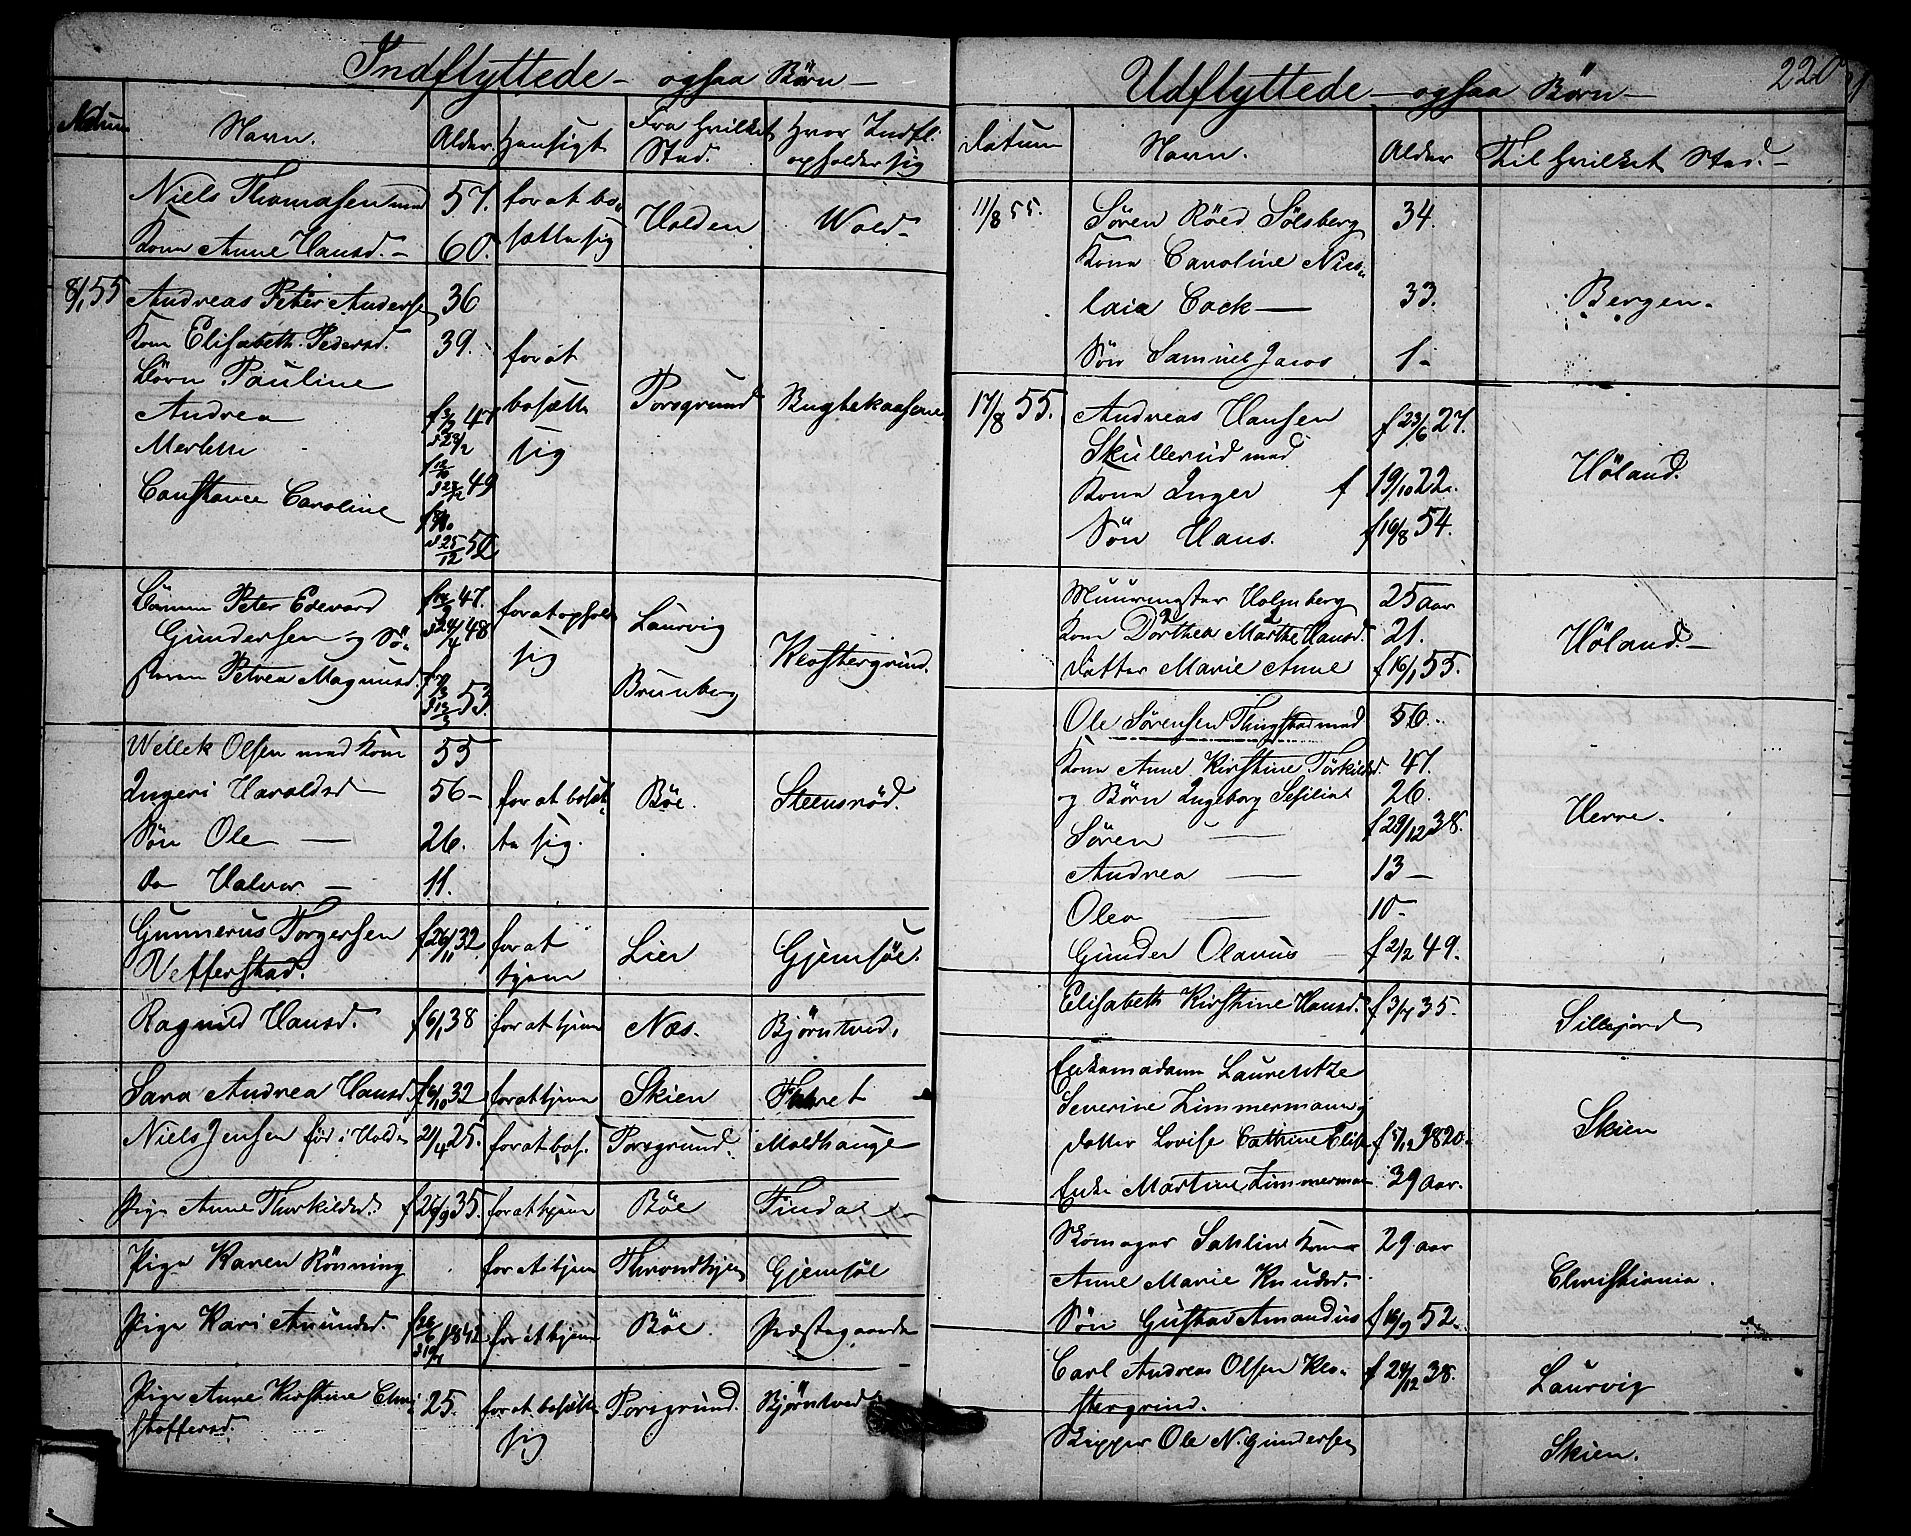 Indflyttede – ogsaa Børn –
Datum Navn. Alder. Hensigt Fra hvilket Sted. Hvor Indfl. opholder sig
Niels Thomasen med 57. for at bo- Holden Wold-
Kone Anne Hansd. – 60. sætte sig
8/1 55 Andreas Peter Anders 36
Kone Elisabeth Pedersd. 39. for at
Børn Pauline
Andrea 47 bosætte Porsgrund
Merthe sig
Constance Caroline 49
25/12 50
Peter Edevard 47. for at ophol
Gundersen og Sö- 48 Laurvig
sig Klostergrind.
Petrea Magnusd. 53. Brunberg
Wellek Olsen med Kone 55
Ingeri Haroldsd 56– for at bosæt- Böe. Steensrød.
Søn Ole — 26. te sig.
do Halvor — 11.
Gunnerus Torgersen f 26/11 32 for at Lier Gjemsöe.
Vefferstad. tjene
Ragnild Hansd. f 6/1 38 for at tjene Næs. Bjørntved.
Sara Andrea Hansd. f 6/10 32 for at tjene Skien
Niels Jensen föd i Holden 21/4 25. for at bos. Porsgrund. Moldhauge
Pige Anne Thorkildsd. f 26/9 35. for at tjene Böe Findal
Pige Karen Rönning for at tjene Throndhjem Gjemsöe
Pige Kari Amundsd. 1842 for at tjene Böe. Præstegaarden
Pige Anne Kirstine Chri 25. for at bosætte Porsgrund. Bjørntved
stoffersd. sig
Udflyttede – ogsaa Børn – 220
Datum Navn. Alder Til hvilket Sted. –
11/8 55. Søren Röed Sölsberg 34.
Kone Caroline Nico-
laia Cock — 33. Bergen.
Søn Samuel Jacob 1–
17/8 55. Andreas Hansen f 23/6 27.
Skullerud med Höland.
Kone Inger f 19/10 22.
Søn Hans. f 16/8 54.
Muurmester Holmberg 25 aar
Kone Dorthea Marthe Hansd. 21. Höland. –
Datter Marie Anne f 16/1 55.
Ole Sørensen Thingstad med 56.
Kone Anne Kirstine Torkildsd. 47.
og Børn Ingeborg Sesilia 26.
Søren — f 29/12 38. Herre.
Andrea — 13 –
Olea — 10–
Gunder Olavus – f 2/2 49.
Elisabeth Kirstine Hansd. f 3/7 35. Sillejord
Enkemadame Laurentze
Severine Zimmermann
Datter Lovise Cathrine Elise Skien
Enke Martine Zimmerman 39 aar.
Skomager Sahlin Kone 29 aar
Anne Marie Knudsd. Christiania.
Søn Gustav Amandus f 16/9 52.
Carl Andreas Olsen Klo- f 24/12 38. Laurvig
stergrind.
Skipper Ole N. Gundersen Skien.